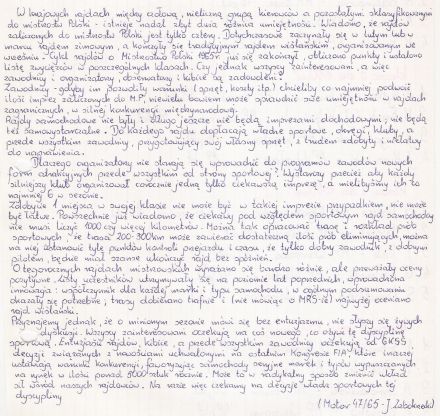 W krajowych rajdach między czołową, nieliczną grupą kierowców a pozostałymi sklasyfikowanymi
do mistrzostw Polski - istnieje nadal zbyt duża różnica umiejętności. Wiadomo, że rajdów
zaliczonych do mistrzostw Polski jest tylko cztery. Dotychczasowe zaczynały się w lutym lub w
marcu rajdem zimowym, a kończyły się tradycyjnym rajdem wiślańskim, organizowanym we
wrześniu. Cykl rajdów o Mistrzostwo Polski 1965r. już się zakończył, obliczono punkty i ustalono
listę zwycięzców w poszczególnych klasach. Czy jednak wszyscy zainteresowani, a więc
zawodnicy i organizatorzy, obserwatorzy i kibice są zadowoleni?
Zawodnicy - gdyby im pozwoliły warunki (sprzęt, koszty itp.) chcieliby co najmniej podwoić
ilość imprez zaliczonych do MP, niewielu bowiem może sprawdzić swe umiejętności w rajdach
zagranicznych, w silnej konkurencji międzynarodowej.
Rajdy samochodowe nie były i długo jeszcze nie będą imprezami dochodowymi; nie będą
też samowystarczalne. Do każdego rajdu dopłacają władze sportowe, okręgi, kluby, a
przede wszystkim zawodnicy, przygotowujący swój własny sprzęt, z trudem zdobyty i niełatwy
do naprawienia.
Dlaczego organizatorzy nie starają się wprowadzić do programów zawodów nowych
form atrakcyjnych przede wszystkim od strony sportowej? Wystarczy przecież aby każdy
silniejszy klub organizował corocznie jedną tylko ciekawszą imprezę, a mielibyśmy ich co
najmniej 6 w sezonie.
Zdobycie I miejsca w swojej klasie nie może być w takiej imprezie przypadkiem, nie może
być łatwe. Powszechnie już wiadomo, że ciekawy pod względem sportowym rajd samochodowy
nie musi liczyć 1000 czy więcej kilometrów. Można tak opracować trasę i rozkład prób
sportowych, że trasa 200-300km może zawierać dostateczną ilość prób eliminujących, można
na niej ustanowić tyle punktów kontroli przejazdu i czasu, że tylko dobry zawodnik, z dobrym
pilotem, będzie miał szanse ukończyć rajd bez spóźnień.
O tegorocznych rajdach mistrzowskich wyrażano się bardzo różnie, ale przeważały oceny
pozytywne. Listy uczestników utrzymywały się na poziomie lat poprzednich, wprowadzona
innowacja: współczynnik dla każdej marki i typu samochodu, w ogólnym podsumowaniu
okazały się potrzebne; trasy dobierano trafnie i (nie mówiąc o MRS-ie) najwyżej oceniano
rajd wiślański.
Przyznajemy jednak, że o minionym sezonie mówi się bez entuzjazmu, nie słyszy się żywych
dyskusji. Wszyscy zainteresowani oczekują na coś nowego, co ożywi tę dyscyplinę
sportową. Entuzjaści rajdów, kibice, a przede wszystkim zawodnicy oczekują od GKSS
decyzji związanych z nowościami uchwalonymi na ostatnim Kongresie FIA, które inaczej
ustawiają warunki konkurencji, faworyzując samochody seryjne marek i typów wypuszczanych
na rynek w ilości ponad 5000 sztuk rocznie. Może to w radykalny sposób zmienić układ
sił wśród naszych rajdowców. Na razie więc czekamy na decyzje władz sportowych tej
dyscypliny
(Motor 47/65 - J. Zabokrzecki)